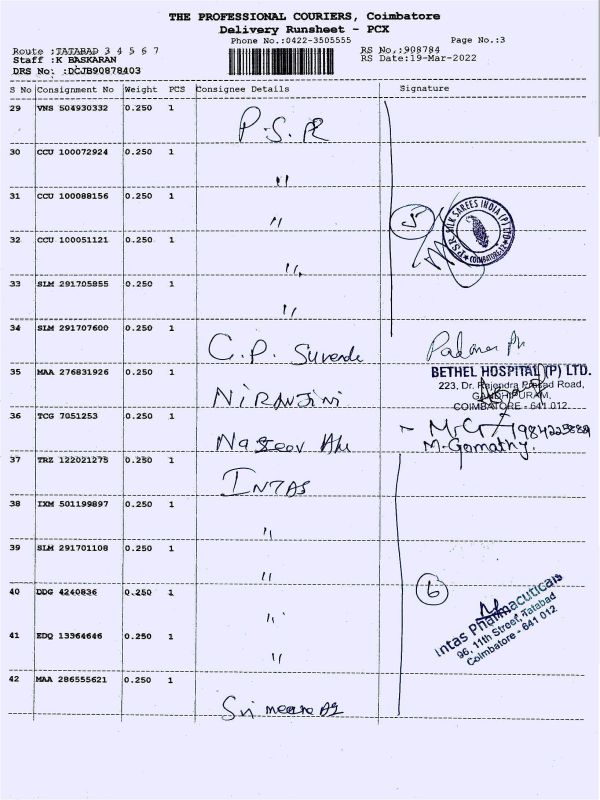 THE PROFESSIONAL COURIERS, Coimbatore
Delivery Runsheet - PCX
Phone No.:0422-3505555
Page No.:3
Route :TATABAD 3 4 5 6 7
Staff :K BASKARAN
DRS No: :DCJB90878403
RS No,:908784
RS Date:19-Mar-2022
S No Consignment No Weight PCS Consignee Details Signature
29 VNS 504930332 0.250 1 P.S.R
30 CCU 100072924 0.250 1 "
31 CCU 100088156 0.250 1 "
32 CCU 100051121 0.250 1 "
33 SLM 291705855 0.250 1 "
5
P.S.R. SILK SAREES INDIA (P) LTD
COIMBATORE-12
34 SLM 291707600 0.250 1 C.P.
35 MAA 276831926 0.250 1 NIRANJINI
BETHEL HOSPITAL (P) LTD.
223, Dr. Rajendra Prasad Road,
GANDHIPURAM,
COIMBATORE - 641 012.
36 TCG 7051253 0.250 1
M.Gomathy.
37 TRZ 122021275 0.250 1 INTAS
38 IXM 501199897 0.250 1 "
39 SLM 291701108 0.250 1 "
40 DDG 4240836 0.250 1 "
6
Intas Pharmaceuticals
96, 11th Street, Tatabad
Coimbatore - 641 012
41 EDQ 13364646 0.250 1 "
42 MAA 286555621 0.250 1 Sri